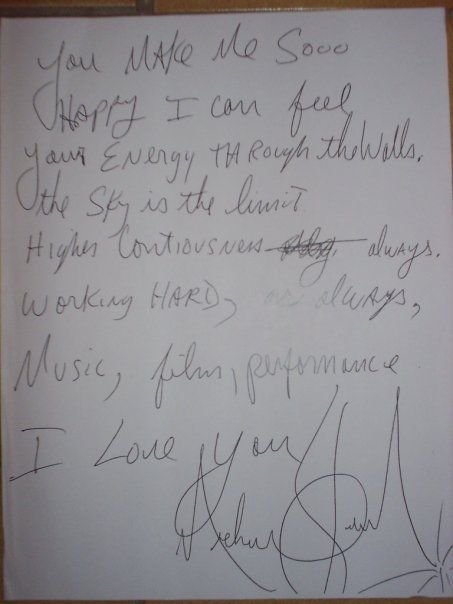 You MAKe Me Sooo
HAPPY I can feel
your ENERGY THRough the Walls.
the Sky is the limit
Higher Contiousness always.
WORKING HARD, as always,
Music, film, performance
I Love You